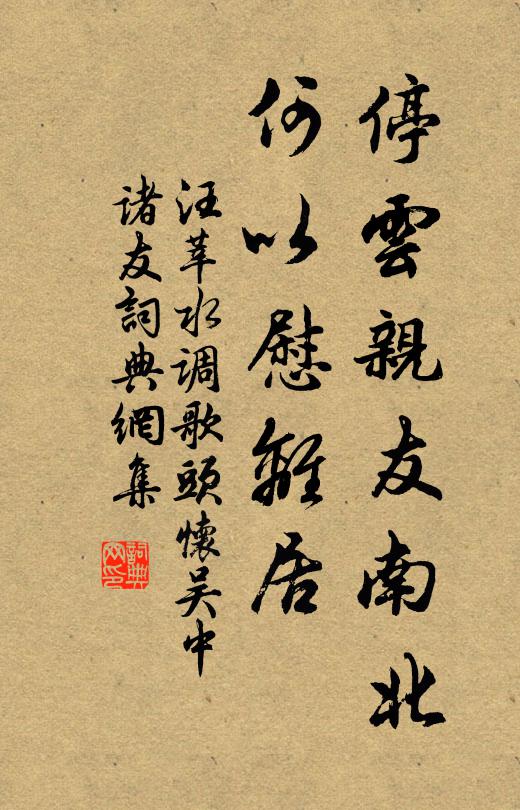 停雲親友南北
何以慰離居
汪莘水调歌頭懷吴中
诸友詞典網集
詞典網印